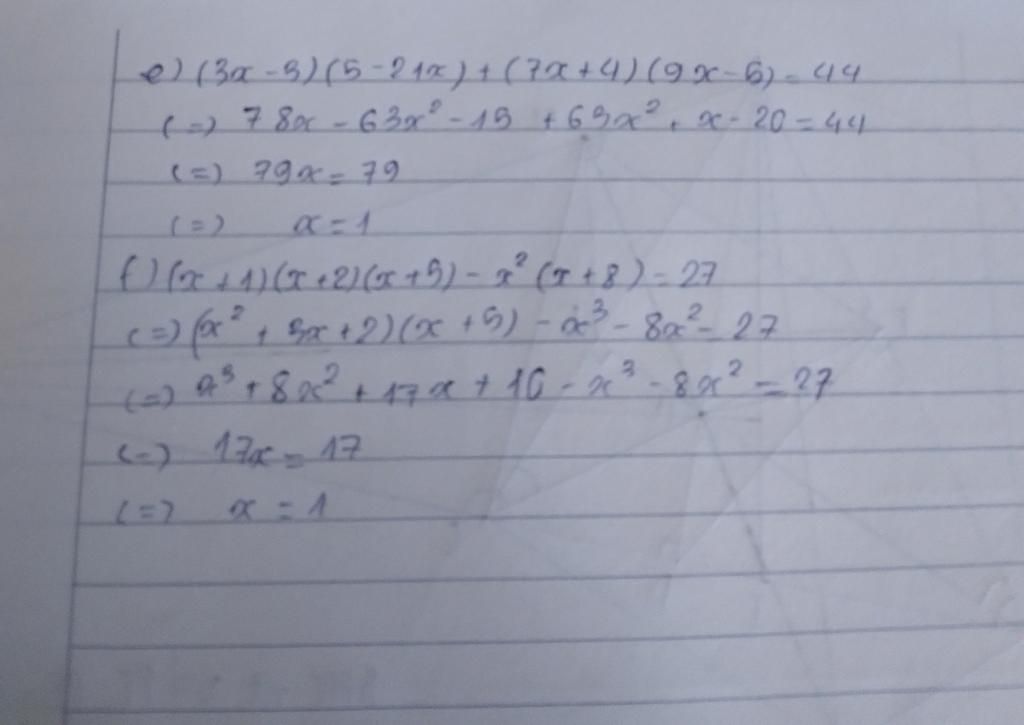 e) (3x - 3)(5 - 21x) + (7x + 4)(9x - 5) = 44
(=) 78x - 63x² - 15 + 63x² + x - 20 = 44
(=) 79x = 79
(=) x = 1
f) (x + 1)(x + 2)(x + 5) - x² (x + 8) = 27
(=) (x² + 3x + 2)(x + 5) - x³ - 8x² = 27
(=) x³ + 8x² + 17x + 10 - x³ - 8x² = 27
(=) 17x = 17
(=) x = 1